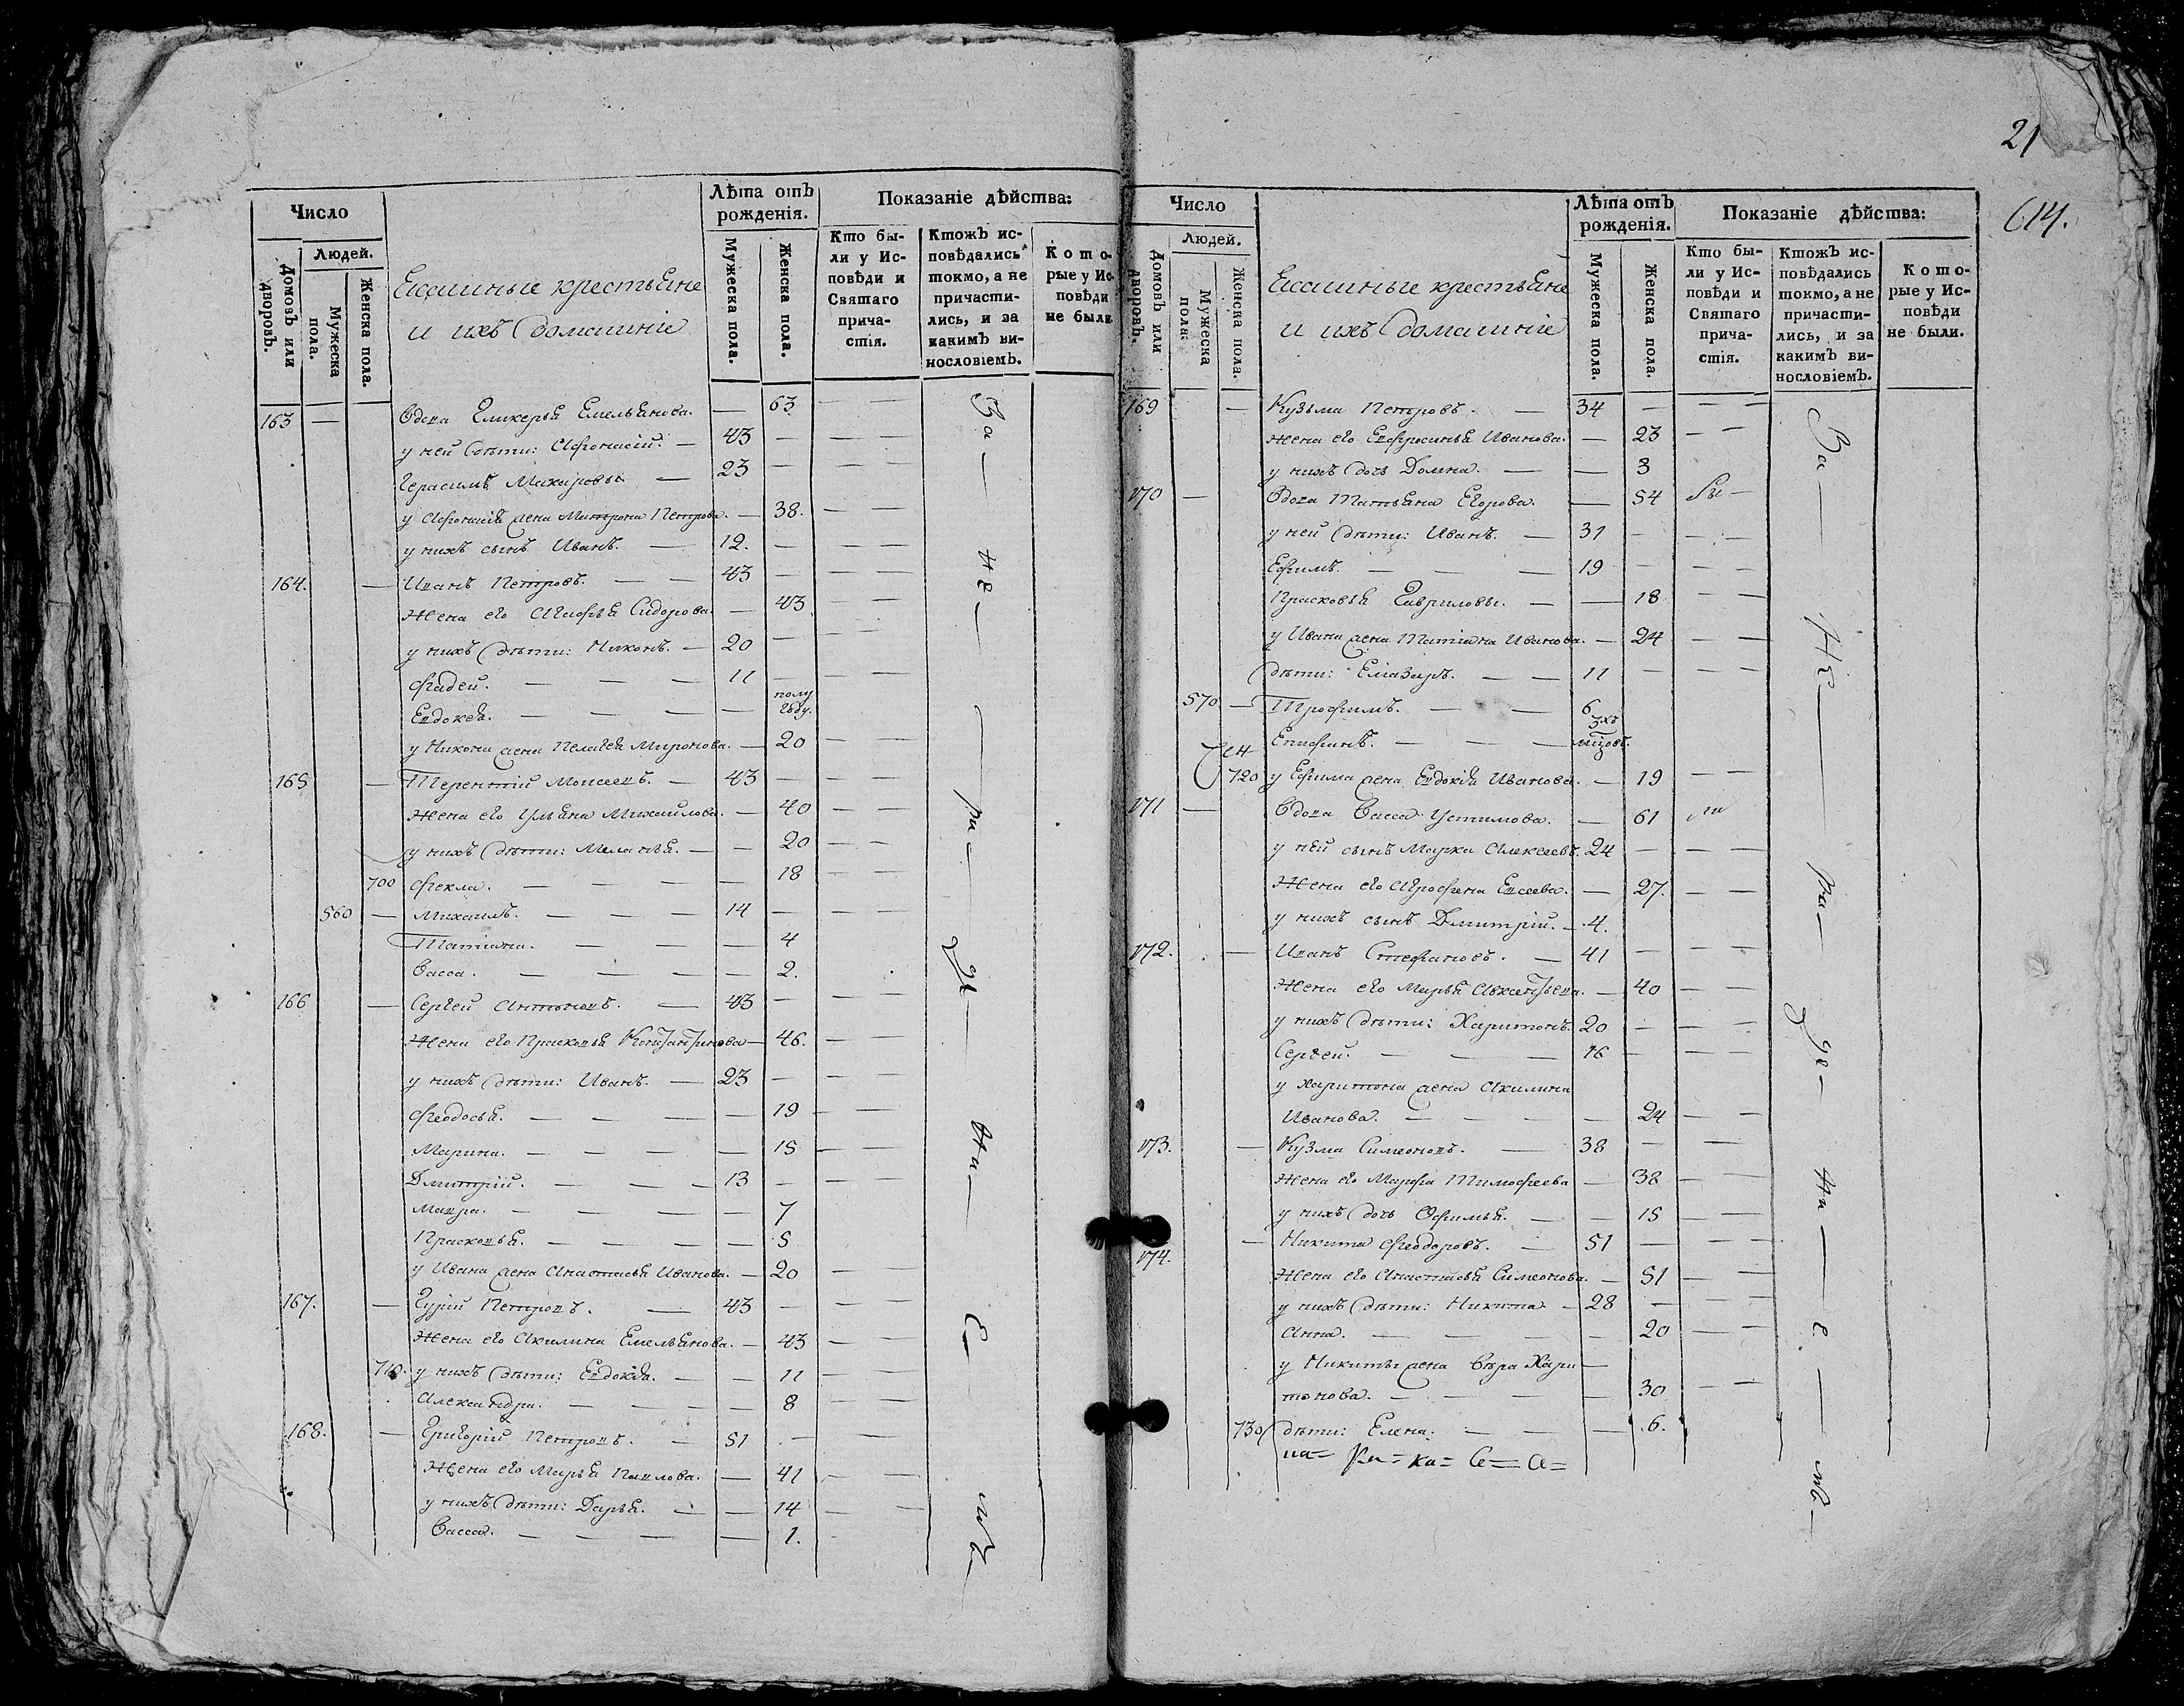 Число
Людей.
Домовъ или дворовъ.
Мужеска пола.
Женска пола.
Ясашные крестьяне
и ихъ домашніе
Лѣта отъ рожденія.
Мужеска пола.
Женска пола.
Показаніе дѣйства:
Кто были у Исповѣди и Святаго причастія.
Ктожъ исповѣдались токмо, а не причастились, и за какимъ винословіемъ.
Которые у Исповѣди не были
163 — Вдова Гликерья Емельянова. — 63
у ней дѣти: Афонасій. — 43 —
Герасимъ — 23 —
у Афонасья жена Матрона Петрова. — 38.
у нихъ сынъ Иванъ. — 12. —
164. — Иванъ Петровъ. — 43 —
Жена его Агафья Сидорова. — 43
у нихъ дѣти: Никонъ. — 20 —
Фадей. — 11 —
Евдокея. — полу году.
у Никона жена Пелагея Миронова. — 20
165 — Терентій Моисеевъ. — 43 —
Жена его Ульяна Михайлова. — 40
у нихъ дѣти: Меланья. — 20
700 Фекла. — 18
560 — Михаилъ. — 14 —
Татіана. — 4
Васса. — 2.
166 — Сергей Антоновъ. — 43 —
Жена его Прасковья Константинова — 46.
у нихъ дѣти: Иванъ. — 23 —
Феодосья. — 19
Марина. — 15
Дмитрій. — 13 —
Мавра. — 7
Прасковья. — 5
у Ивана жена Анастасья Иванова. — 20
167. — Гурій Петровъ. — 43 —
Жена его Акилина Емельянова. — 43
710. у нихъ дѣти: Евдокія. — 11
Александра. — 8
168. — Григорій Петровъ. — 51 —
Жена его Марья Павлова. — 41
у нихъ дѣти: Дарья. — 14
Васса. — 1.
За — не — ра — де — ні — е — мъ —
21
614.
Число
Людей.
Домовъ или дворовъ.
Мужеска пола.
Женска пола.
Ясашные крестьяне
и ихъ домашніе
Лѣта отъ рожденія.
Мужеска пола.
Женска пола.
Показаніе дѣйства:
Кто были у Исповѣди и Святаго причастія.
Ктожъ исповѣдались токмо, а не причастились, и за какимъ винословіемъ.
Которые у Исповѣди не были.
169 — Кузьма Петровъ. — 34 —
Жена его Евфросинья Иванова. — 23
у нихъ дочь Домна. — 3
170 — Вдова Татьяна Егорова. — 54 бы —
у ней дѣти: Иванъ. — 31 —
Ефимъ. — 19 —
Прасковья Гавриловы. — 18
у Ивана жена Татіана Иванова. — 24
дѣти: Елиазаръ. — 11 —
570 — Трофимъ. — 6
Епифанъ. — 3хъ мцовъ.
720 у Ефима жена Евдокія Иванова. — 19
171 — Вдова Васса Устимова. — 61 ли
у ней сынъ Марка Алексеевъ. 24 —
Жена его Агрофена Евсеева. — 27.
у нихъ сынъ Дмитрій. — 4.
172. — Иванъ Стефановъ. — 41 —
Жена его Марья — 40
у нихъ дѣти: Харитонъ. 20 —
Сергей. — 16 —
у Харитона жена Акилина
Иванова. — 24
173. — Кузма Симеоновъ. — 38 —
Жена его Марфа Тимофеева — 38
у нихъ дочь Офимья. — 15
174. — Никита Феодоровъ. — 51 —
Жена его Анастасья Симеонова. — 51
у нихъ дѣти: Никита — 28 —
Анна. — 20
у Никиты жена Вѣра Хари —
тонова. — 30
730 дѣти: Елена. — 6.
За — не — ра — де — ні — е. — мъ —